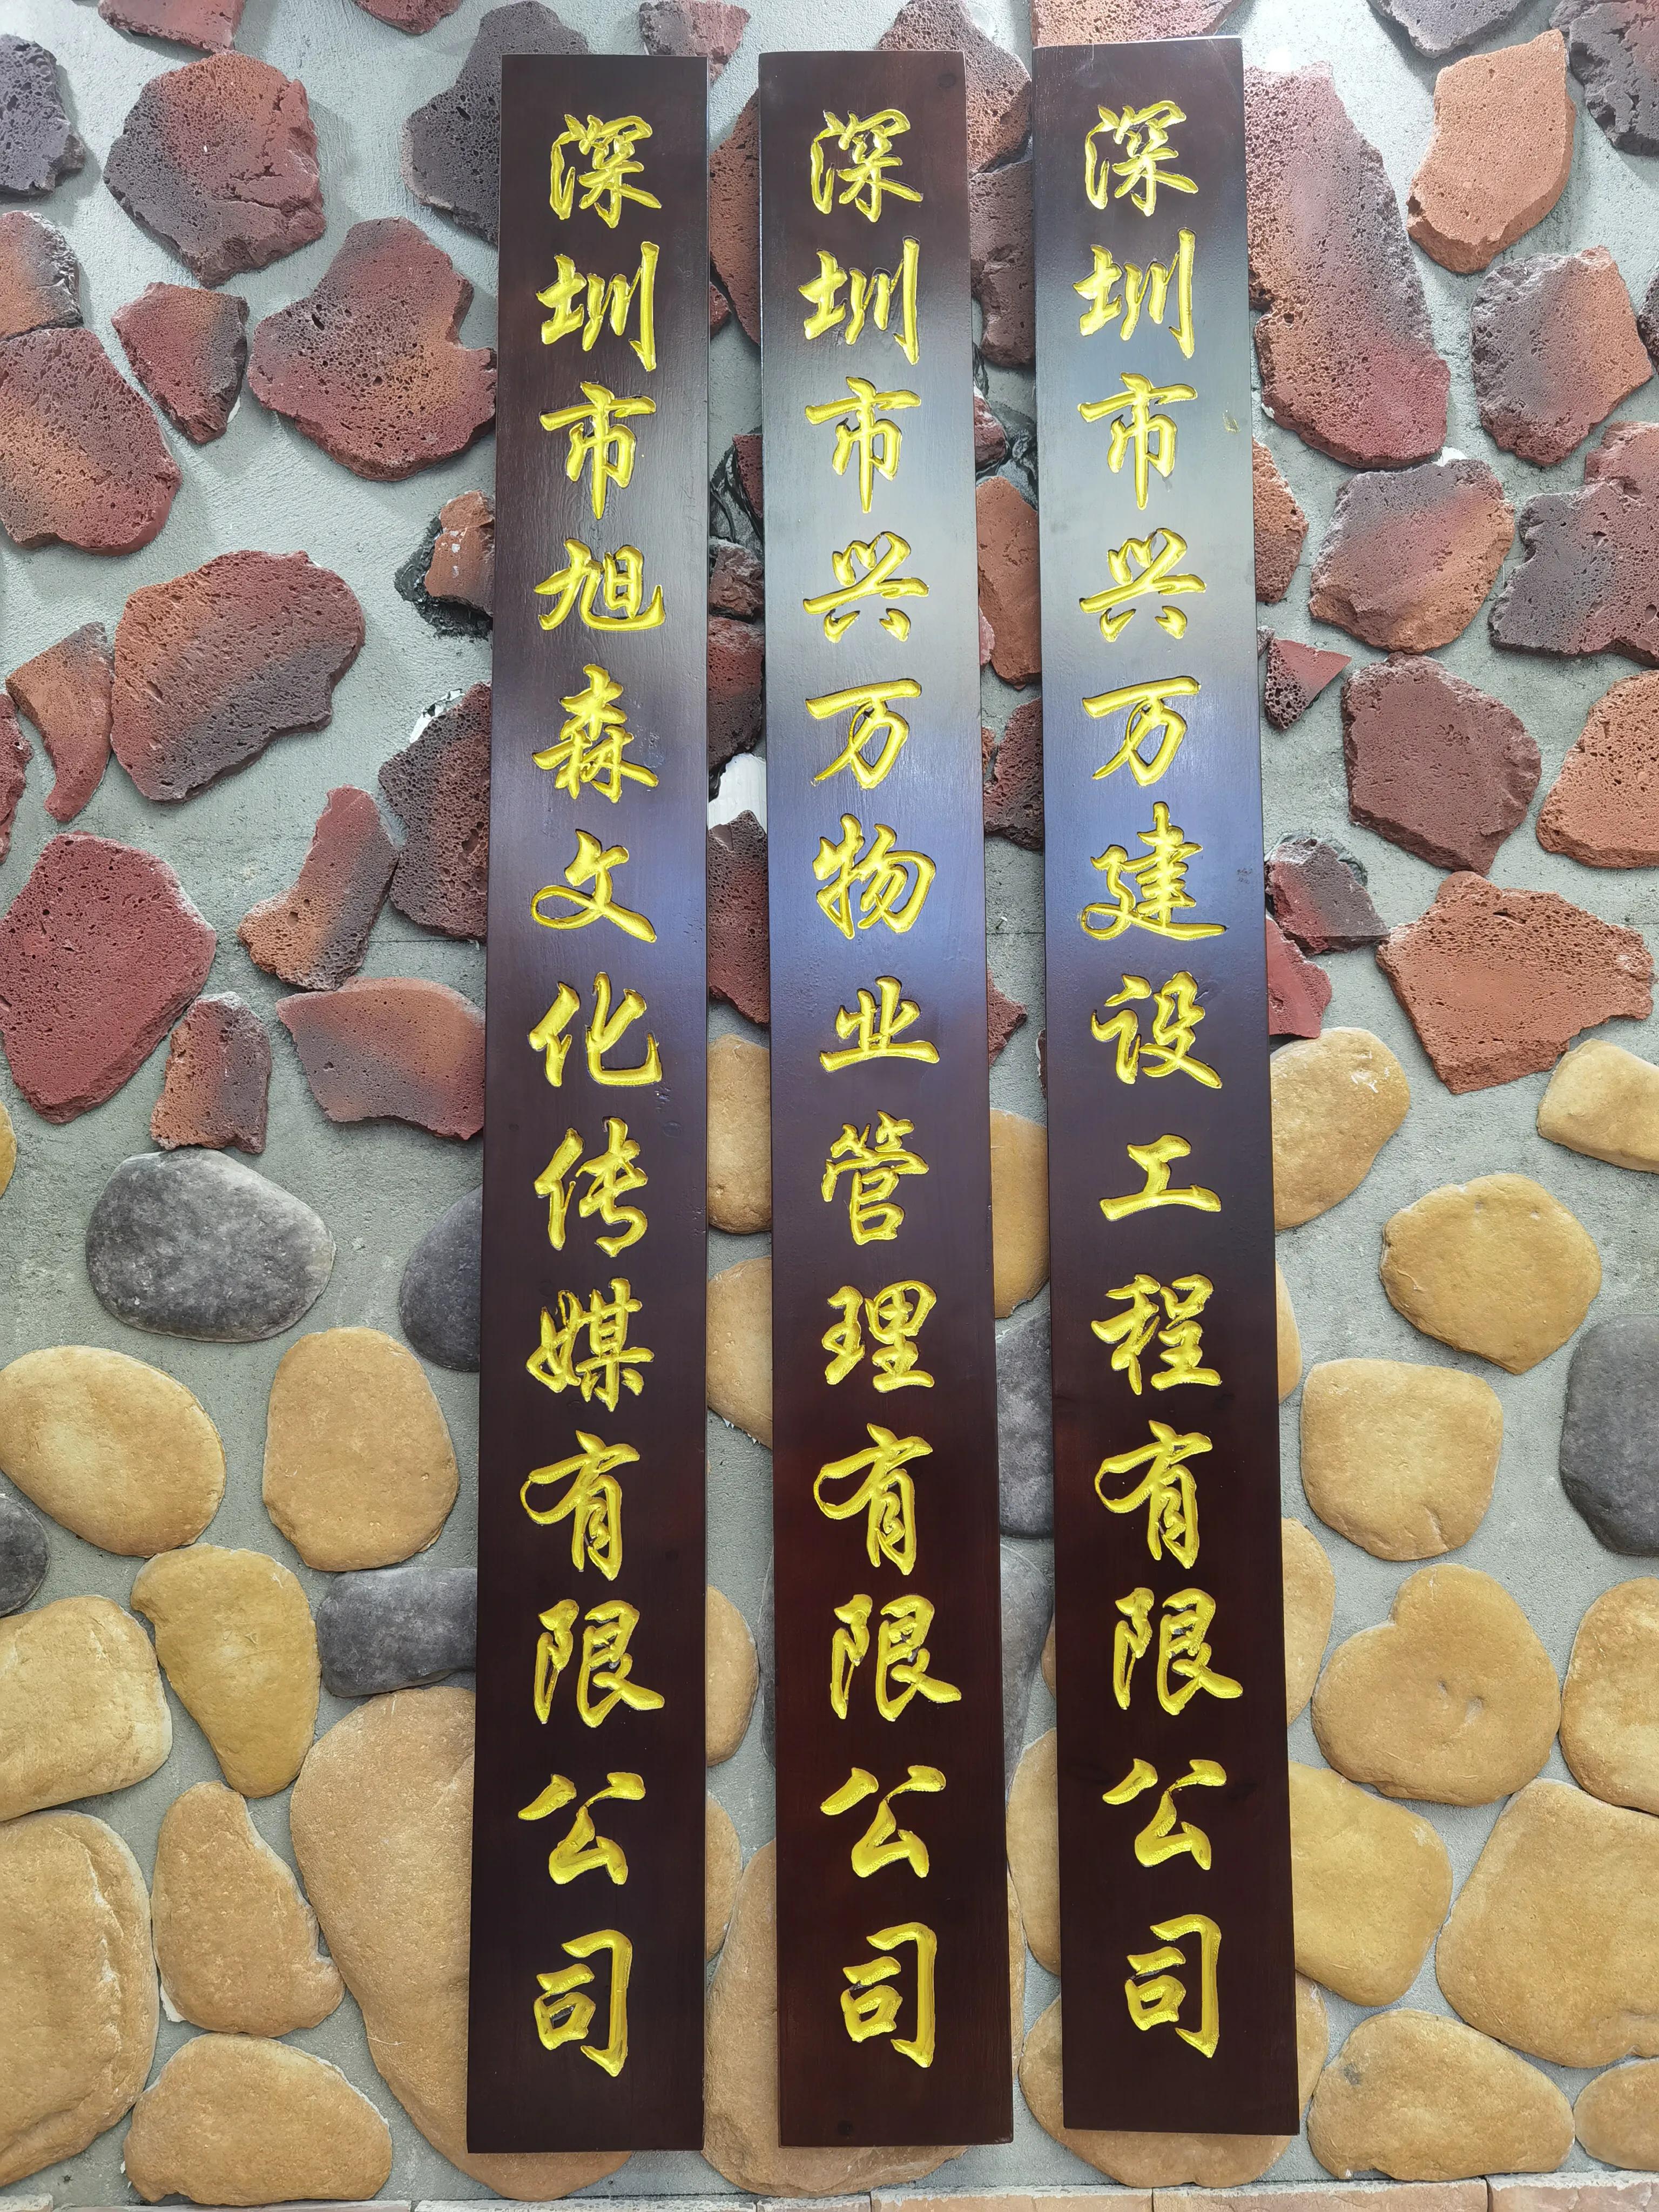 深圳市旭森文化传媒有限公司
深圳市兴万物业管理有限公司
深圳市兴万建设工程有限公司